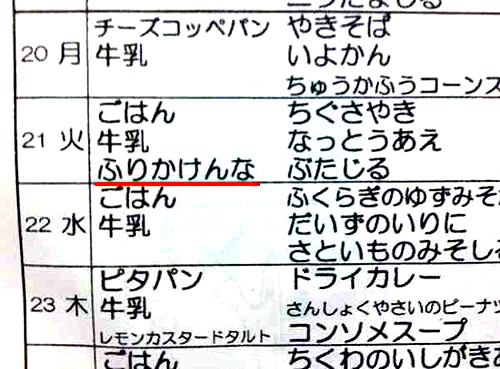 20 月
チーズコッペパン やきそば
牛乳 いよかん
ちゅうかふうコーンス
21 火
ごはん ちぐさやき
牛乳 なっとうあえ
ふりかけんな ぶたじる
22 水
ごはん ふくらぎのゆずみそ
牛乳 だいずのいりに
さといものみそし
23 木
ピタパン ドライカレー
牛乳 さんしょくやさいのピーナッ
レモンカスタードタルト コンソメスープ
ごはん ちくわのいしがき